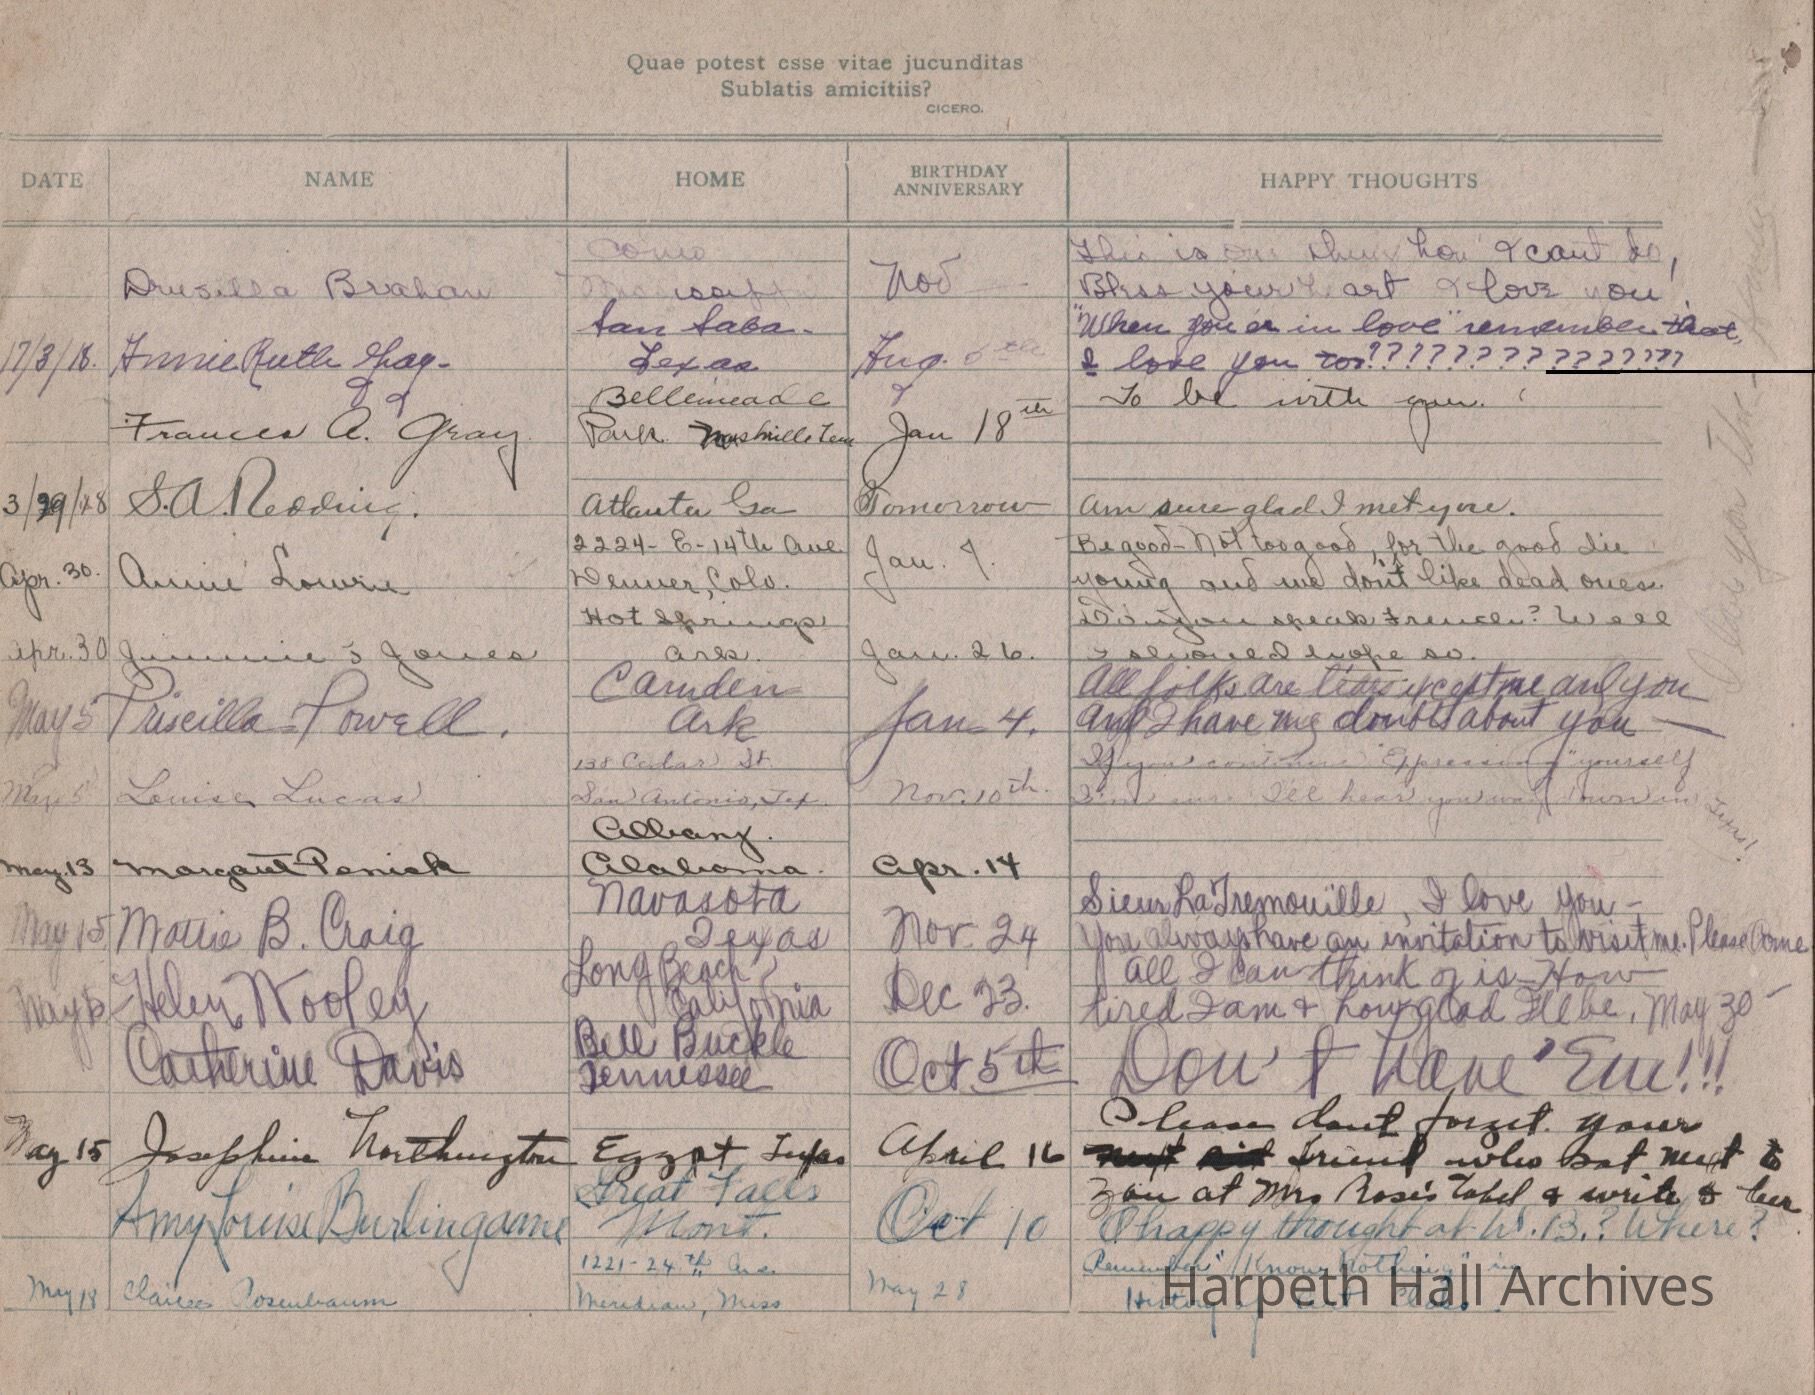 Quae potest esse vitae jucunditas
Sublatis amicitiis?
CICERO.
DATE NAME HOME BIRTHDAY ANNIVERSARY HAPPY THOUGHTS
Como This is one I can't do,
Drusilla Brahan Mississippi Nov Bless your heart I love you.
San Saba- "When you're in love" remember that,
17/3/18. Annie Ruth Gray- Texas Aug. 6th I love you too????????????????
Bellemeade To be with you.
Frances A. Gray Park Nashville Tenn Jan 18th
3/29/18 S.A. Redding. Atlanta Ga Tomorrow Am sure glad I met you.
2224-E-14th Ave Be good-Not too good, for the good die
Apr. 30. Annie Lowrie Denver, Colo. Jan. 7. young and we don't like dead ones.
Hot Springs Do you speak French? Well
Apr. 30 Jimmie S Jones Ark. Jan. 26. I should hope so.
Camden All folks are liars except me and you
May 5 Priscilla Powell. Ark Jan-4. And I have my doubts about you
138 Cedar St. If you continue "Expressing" yourself
May 5 Louise Lucas San Antonio, Tex. Nov. 10th. I'm sure I'll hear you way down in Texas!
Albany.
May. 13 Margaret Penick Alabama. Apr. 14
Navasota Sieur La Tremouille, I love you-
May 15 Mottie B. Craig Texas Nov. 24 You always have an invitation to visit me. Please Come
Long Beach All I can think of is-How
May 15 Helen Wooley California Dec 23. tired I am & how glad I'll be, May 30
Bell Buckle
Catherine Davis Tennessee Oct 5th Don't Have 'Em!!!
Please dont forget your
May 15 Josephine Northington Egypt Texas April 16 friend who sat next to
Great Falls you at Mrs Rose's Tabel & write to her
Amy Louise Burlingame Mont. Oct 10 O happy thought at W.B.? Where?
1221-24th Ave. Remember "Know Nothing" in
May 18 Clarices Rosenbaum Meridian, Miss May 28 History of Art Class.
Harpeth Hall Archives